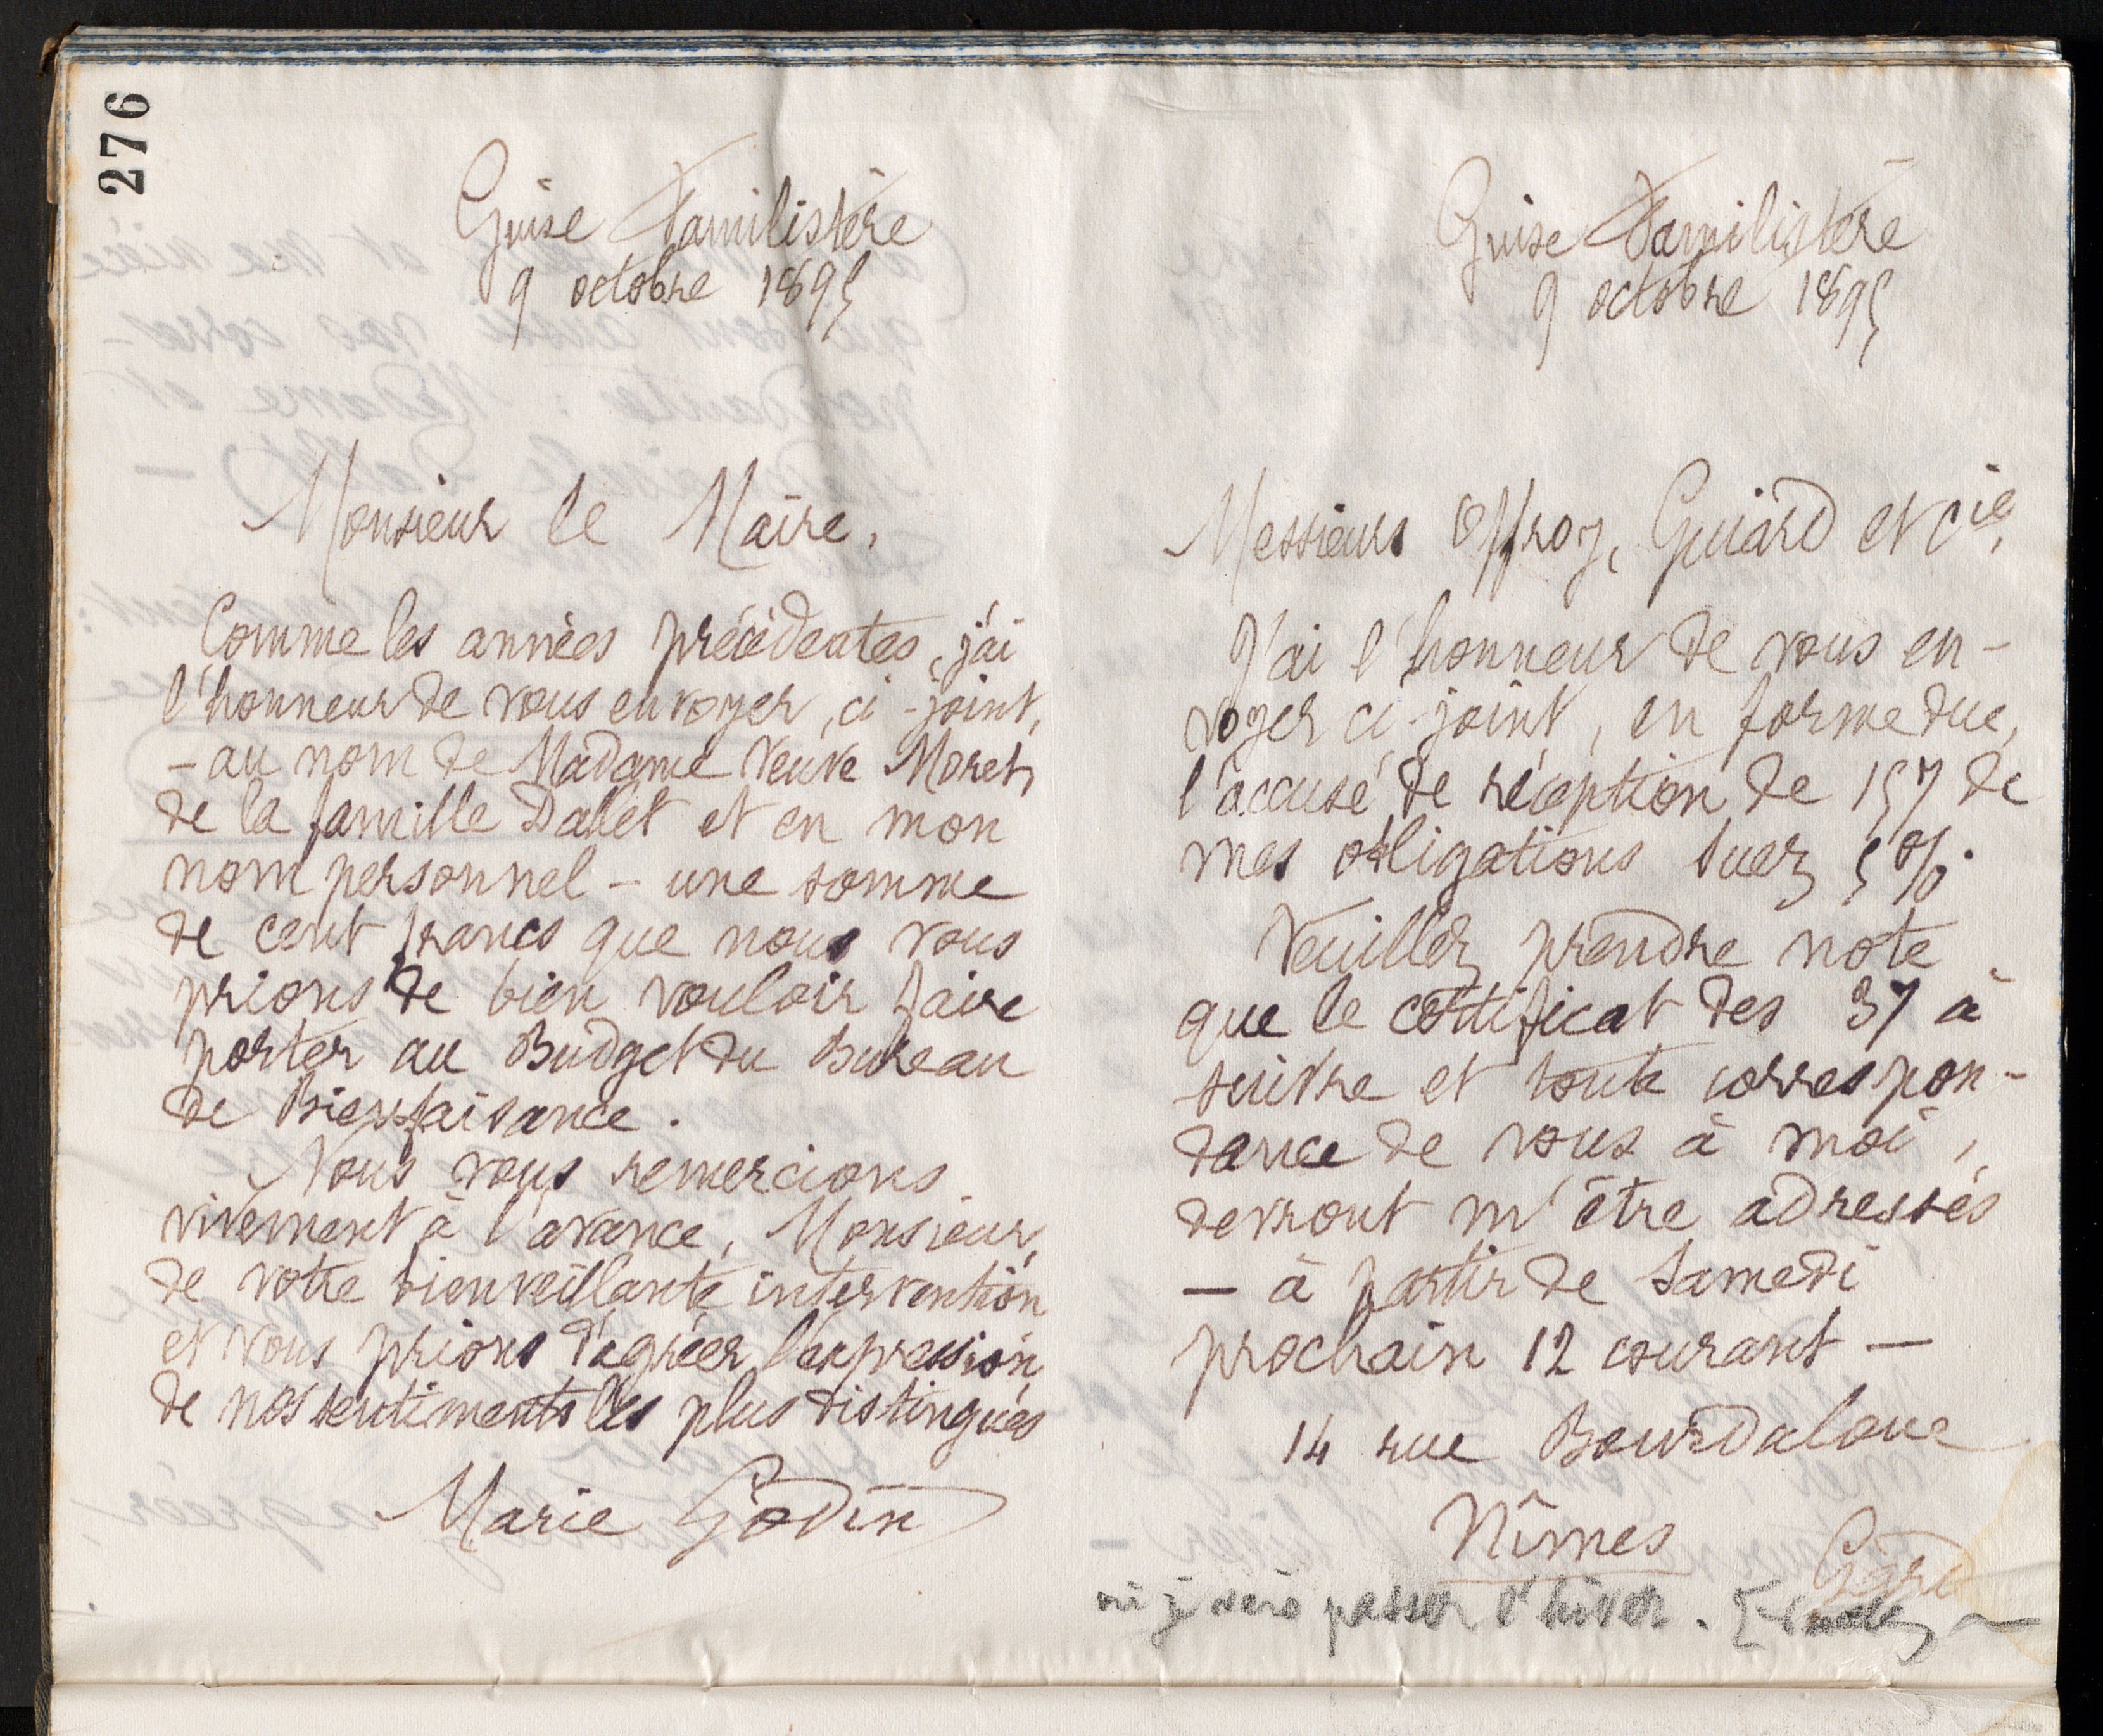 276
Guise Familistère
9 octobre 1895
Monsieur le Maire,
Comme les années précédentes, j'ai
l'honneur de vous envoyer, ci-joint,
- au nom de Madame Veuve Moret,
de la famille Dallet et en mon
nom personnel - une somme
de cent francs que nous vous
prions de bien vouloir faire
porter au Budget du Bureau
de Bienfaisance.
Nous vous remercions
vivement à l'avance, Monsieur,
de votre bienveillante intervention
et vous prions d'agréer l'expression
de nos sentiments les plus distingués
Marie Godin
Guise Familistère
9 octobre 1895
Messieurs Offroy, Guiard et Cie,
J'ai l'honneur de vous en-
voyer ci-joint, en forme due,
l'accusé de réception de 157 de
mes obligations Suez 5%.
Veuillez prendre note
que le certificat des 37 à
suivre et toute correspon-
dance de vous à moi,
devront m'être adressés
— à partir de Samedi
prochain 12 courant —
14 rue Bourdaloue
Nîmes
Gard
où je vais passer l'hiver.